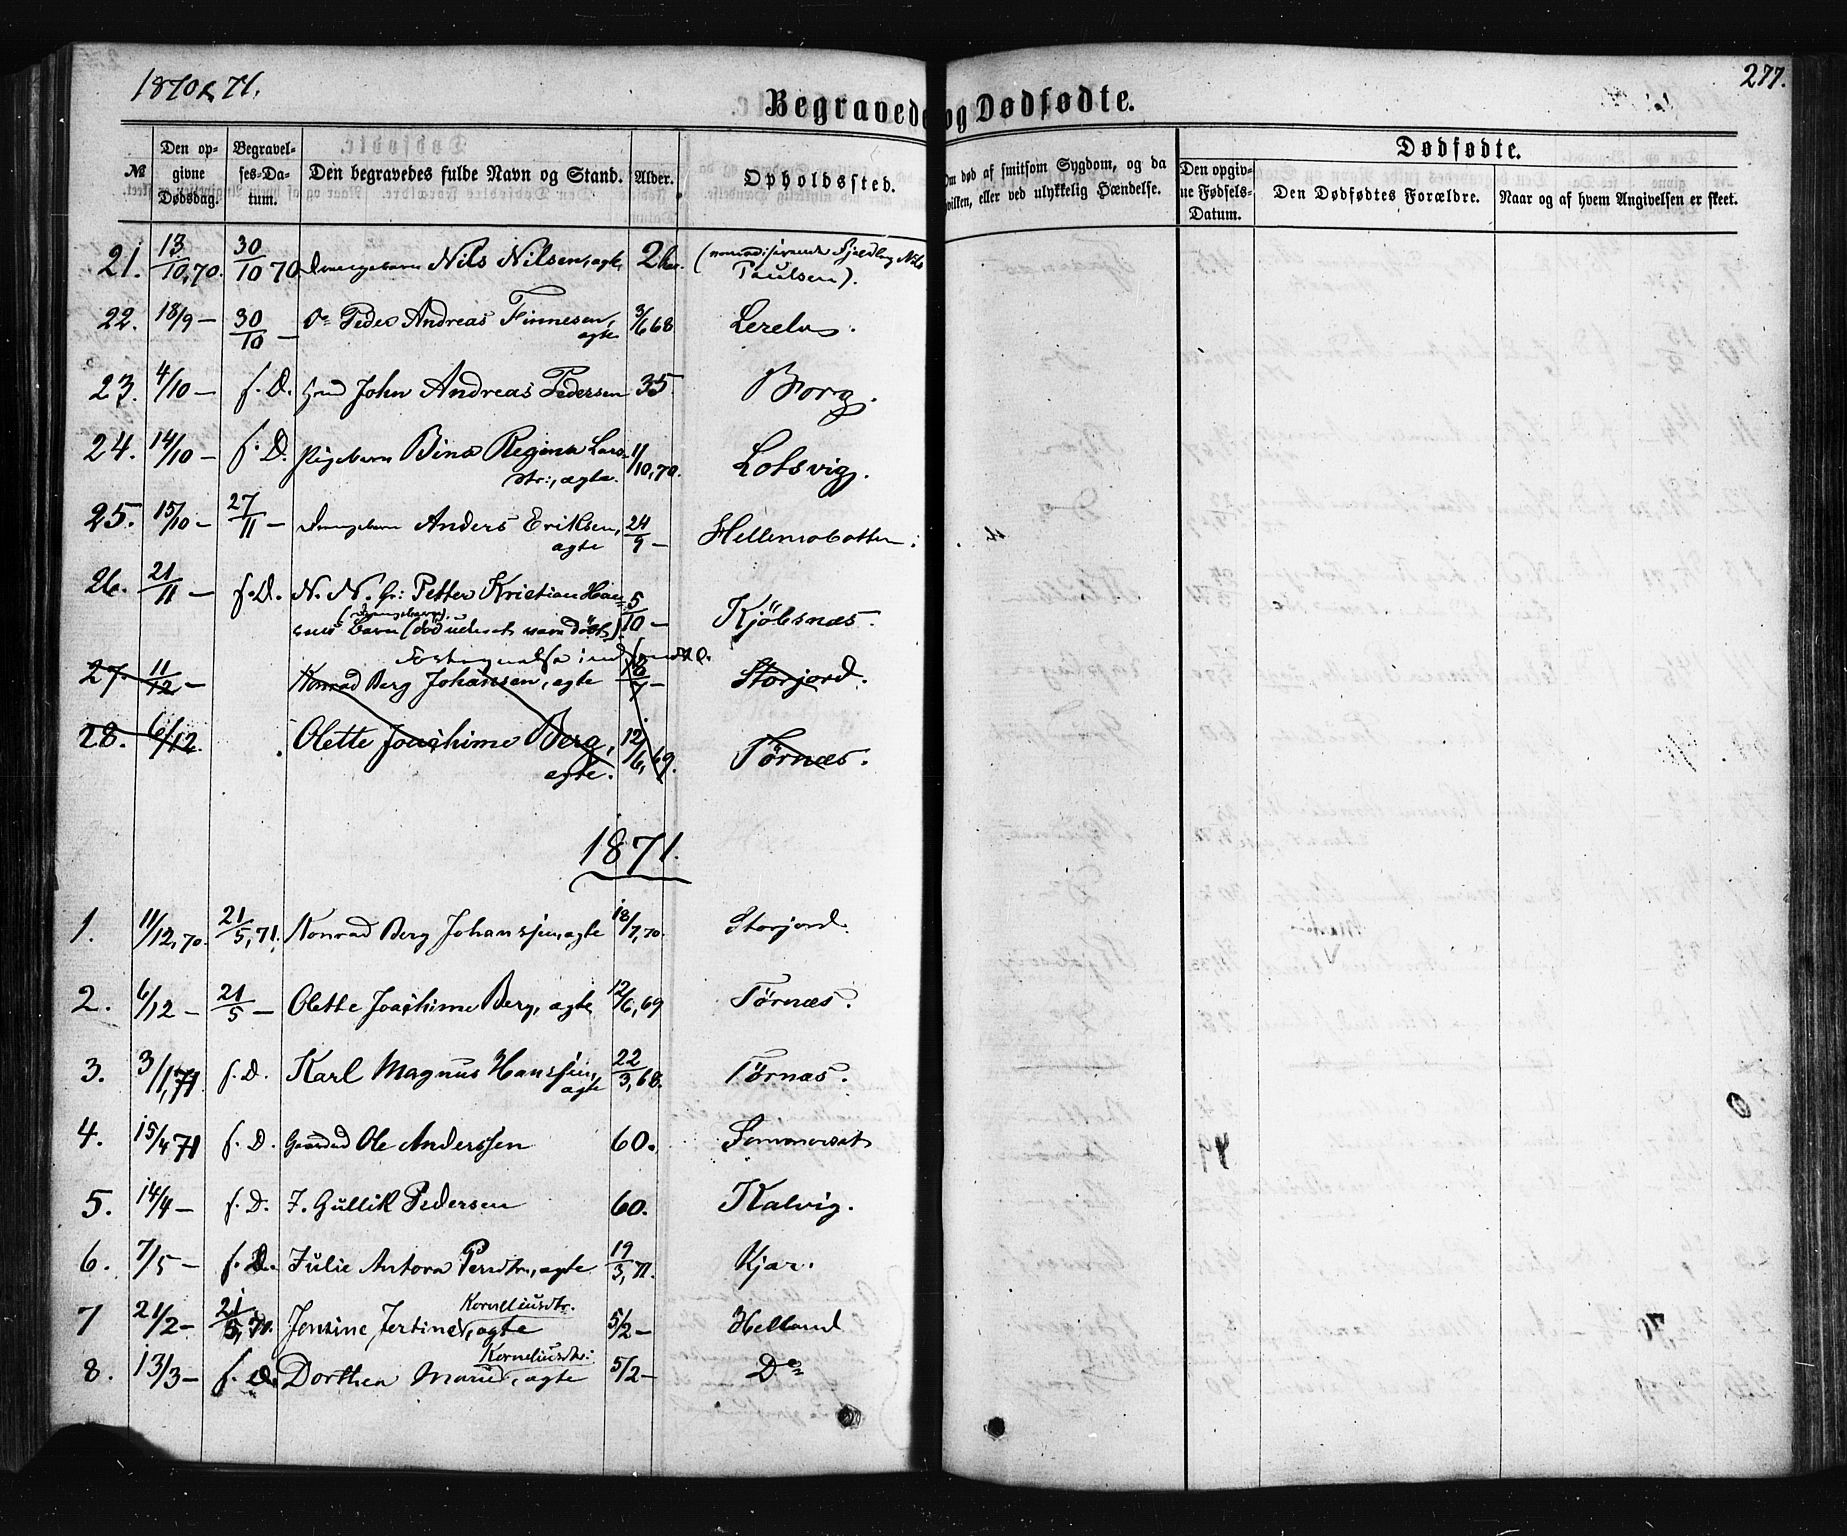 1870 & 71.
277.
Begravede og Dødfødte.
№ Den opgivne Dødsdag. Begravelses-Datum. Den begravedes fulde Navn og Stand. Alder. Opholdssted. Om død af smitsom Sygdom, og da hvilken, eller ved ulykkelig Hændelse. Dødfødte.
Den opgivne Fødsels-Datum. Den Dødfødtes Forældre. Naar og af hvem Angivelsen er skeet.
21. 13/10,70. 30/10 70 Drengebarn Nils Nilsen, ægte, (nomadiserende Fjeldlap Nils
Paulsen).
22. 18/9 — 30/10 — Do Peder Andreas Finnesen, 3/6 68
ægte
23. 4/10 — f. D. John Andreas Pedersen 35. Borg.
24. 14/10 — f. D. Pigebarn Regina Lars- 11/10,70. Lotsvig.
dtr:, ægte.
25. 15/10 — 27/11 — Drengebarn Anders Eriksen, 24/9 — Hellemobotten.
ægte
26. 21/11 — f. D. N. N. Petter Kristian Han- 5/10 — Kjöbsnæs.
(Drengebarn)
sens Barn (död udöbt)
27. 11/12 — Konrad Berg Johansen, ægte 18/7 — Storjord.
28. 6/12. Olette Joachime Berg, 12/6, 69. Törnæs.
ægte.
1871.
1. 11/12,70. 21/5,71. Konrad Berg Johanssen, ægte 18/7,70. Storjord.
2. 6/12 — 21/5 — Olette Joachime Berg, ægte 12/6,69 Törnæs.
3. 3/1,71 f. D. Karl Magnus Hanssen, 22/3,68. Törnæs.
ægte
4. 15/4 71 f. D. Gaardmd Ole Anderssen 60. Sommerset
5. 14/4 — f. D. F. Gullik Pedersen 60. Kalvig.
6. 7/5 — f. D. Julie Antora Persdtr., ægte 19/3,71. Kjær.
Korneliusdtr.
7 21/2 — 21/5,71. Jensine Jertine, ægte 5/2 — Helland
Korneliusdtr:
8. 13/3 — f. D. Dorthea Marie, ægte 5/2 — Do